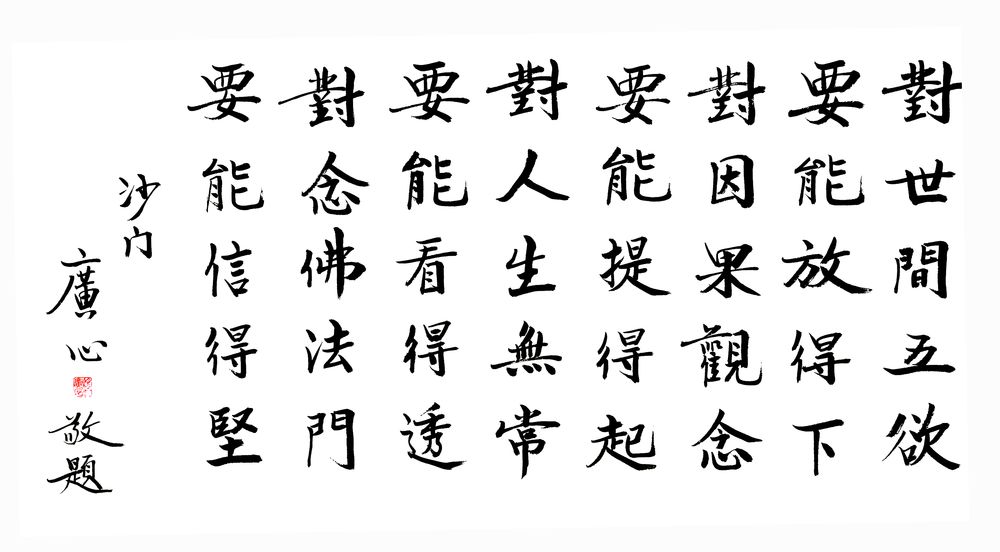 對世間五欲
要能放得下
對因果觀念
要能提得起
對人生無常
要能看得透
對念佛法門
要能信得堅
沙门
廣心
敬題